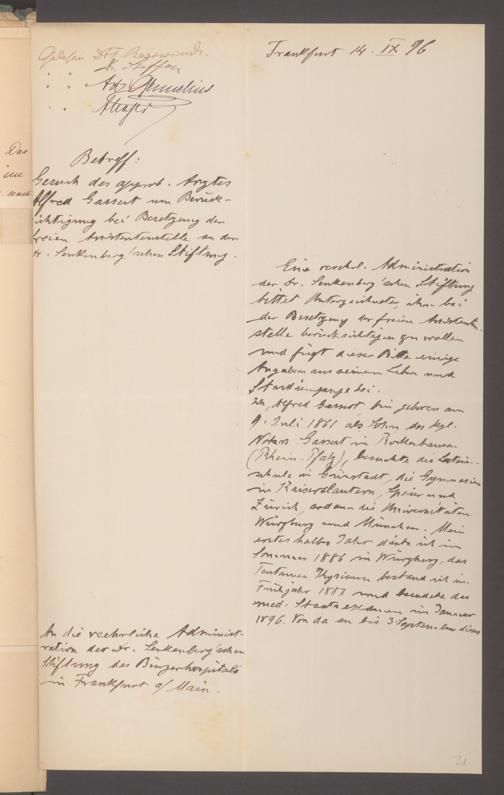 Gelesen Dr.
Frankfurt 14. IX. 96
Betreff:
Gesuch des approb. Arztes
Alfred Gassert um Berück-
sichtigung bei Besetzung der
freien Assistentenstelle an der
Dr. Senkenberg'schen Stiftung.
Eine verehrl. Administration
der Dr. Senkenberg'schen Stiftung
bittet Unterzeichneter, ihn bei
der Besetzung der freien Assistenten-
stelle berücksichtigen zu wollen
und fügt dieser Bitte einige
Angaben aus seinem Leben und
Studiengange bei.
Ich, Alfred Gassert, bin geboren am
9. Juli 1861 als Sohn des kgl.
Notars Gassert in Rockenhausen
(Rhein-Pfalz), besuchte die Latein-
schule in Grünstadt, die Gymnasien
in Kaiserslautern, Speier und
Zürich, sodann die Universitäten
Würzburg und München. Mein
erstes halbes Jahr diente ich im
Sommer 1886 in Würzburg, das
Tentamen Physicum bestand ich im
Frühjahr 1887 und beendete das
med. Staatsexamen im Januar
1896. Von da an bis 3 September dieses
An die verehrliche Administ-
ration der Dr. Senkenberg'schen
Stiftung des Bürgerhospitals
in Frankfurt a/Main.
21